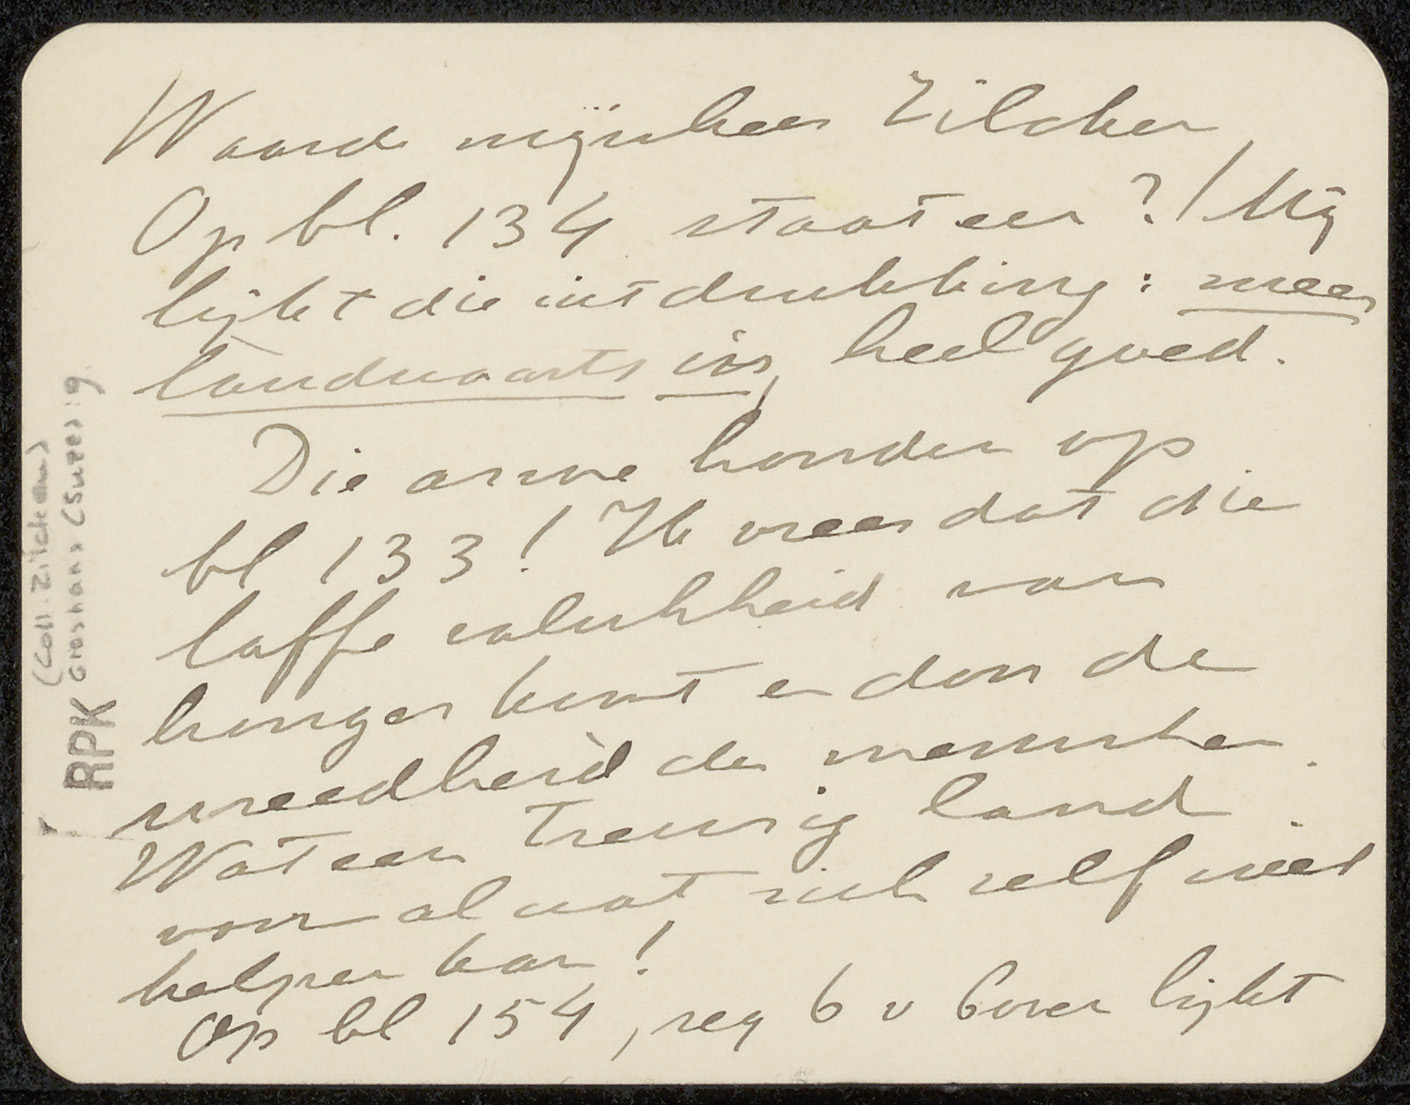 Waarde mijnheer Zilcken,
Op bl. 134 staat een ? / Mij
lijkt die uitdrukking: meer
landwaarts in, heel goed.
Die arme honden op
bl 133! Ik vrees dat die
laffe valschheid van
honger komt en door de
wreedheid der menschen.
Wat een treurig land
voor al wat zich zelf niet
helpen kan!
Op bl 154, reg 6 v boven lijkt
(Coll. Zilcken)
Groshans (Suze) :9
RPK